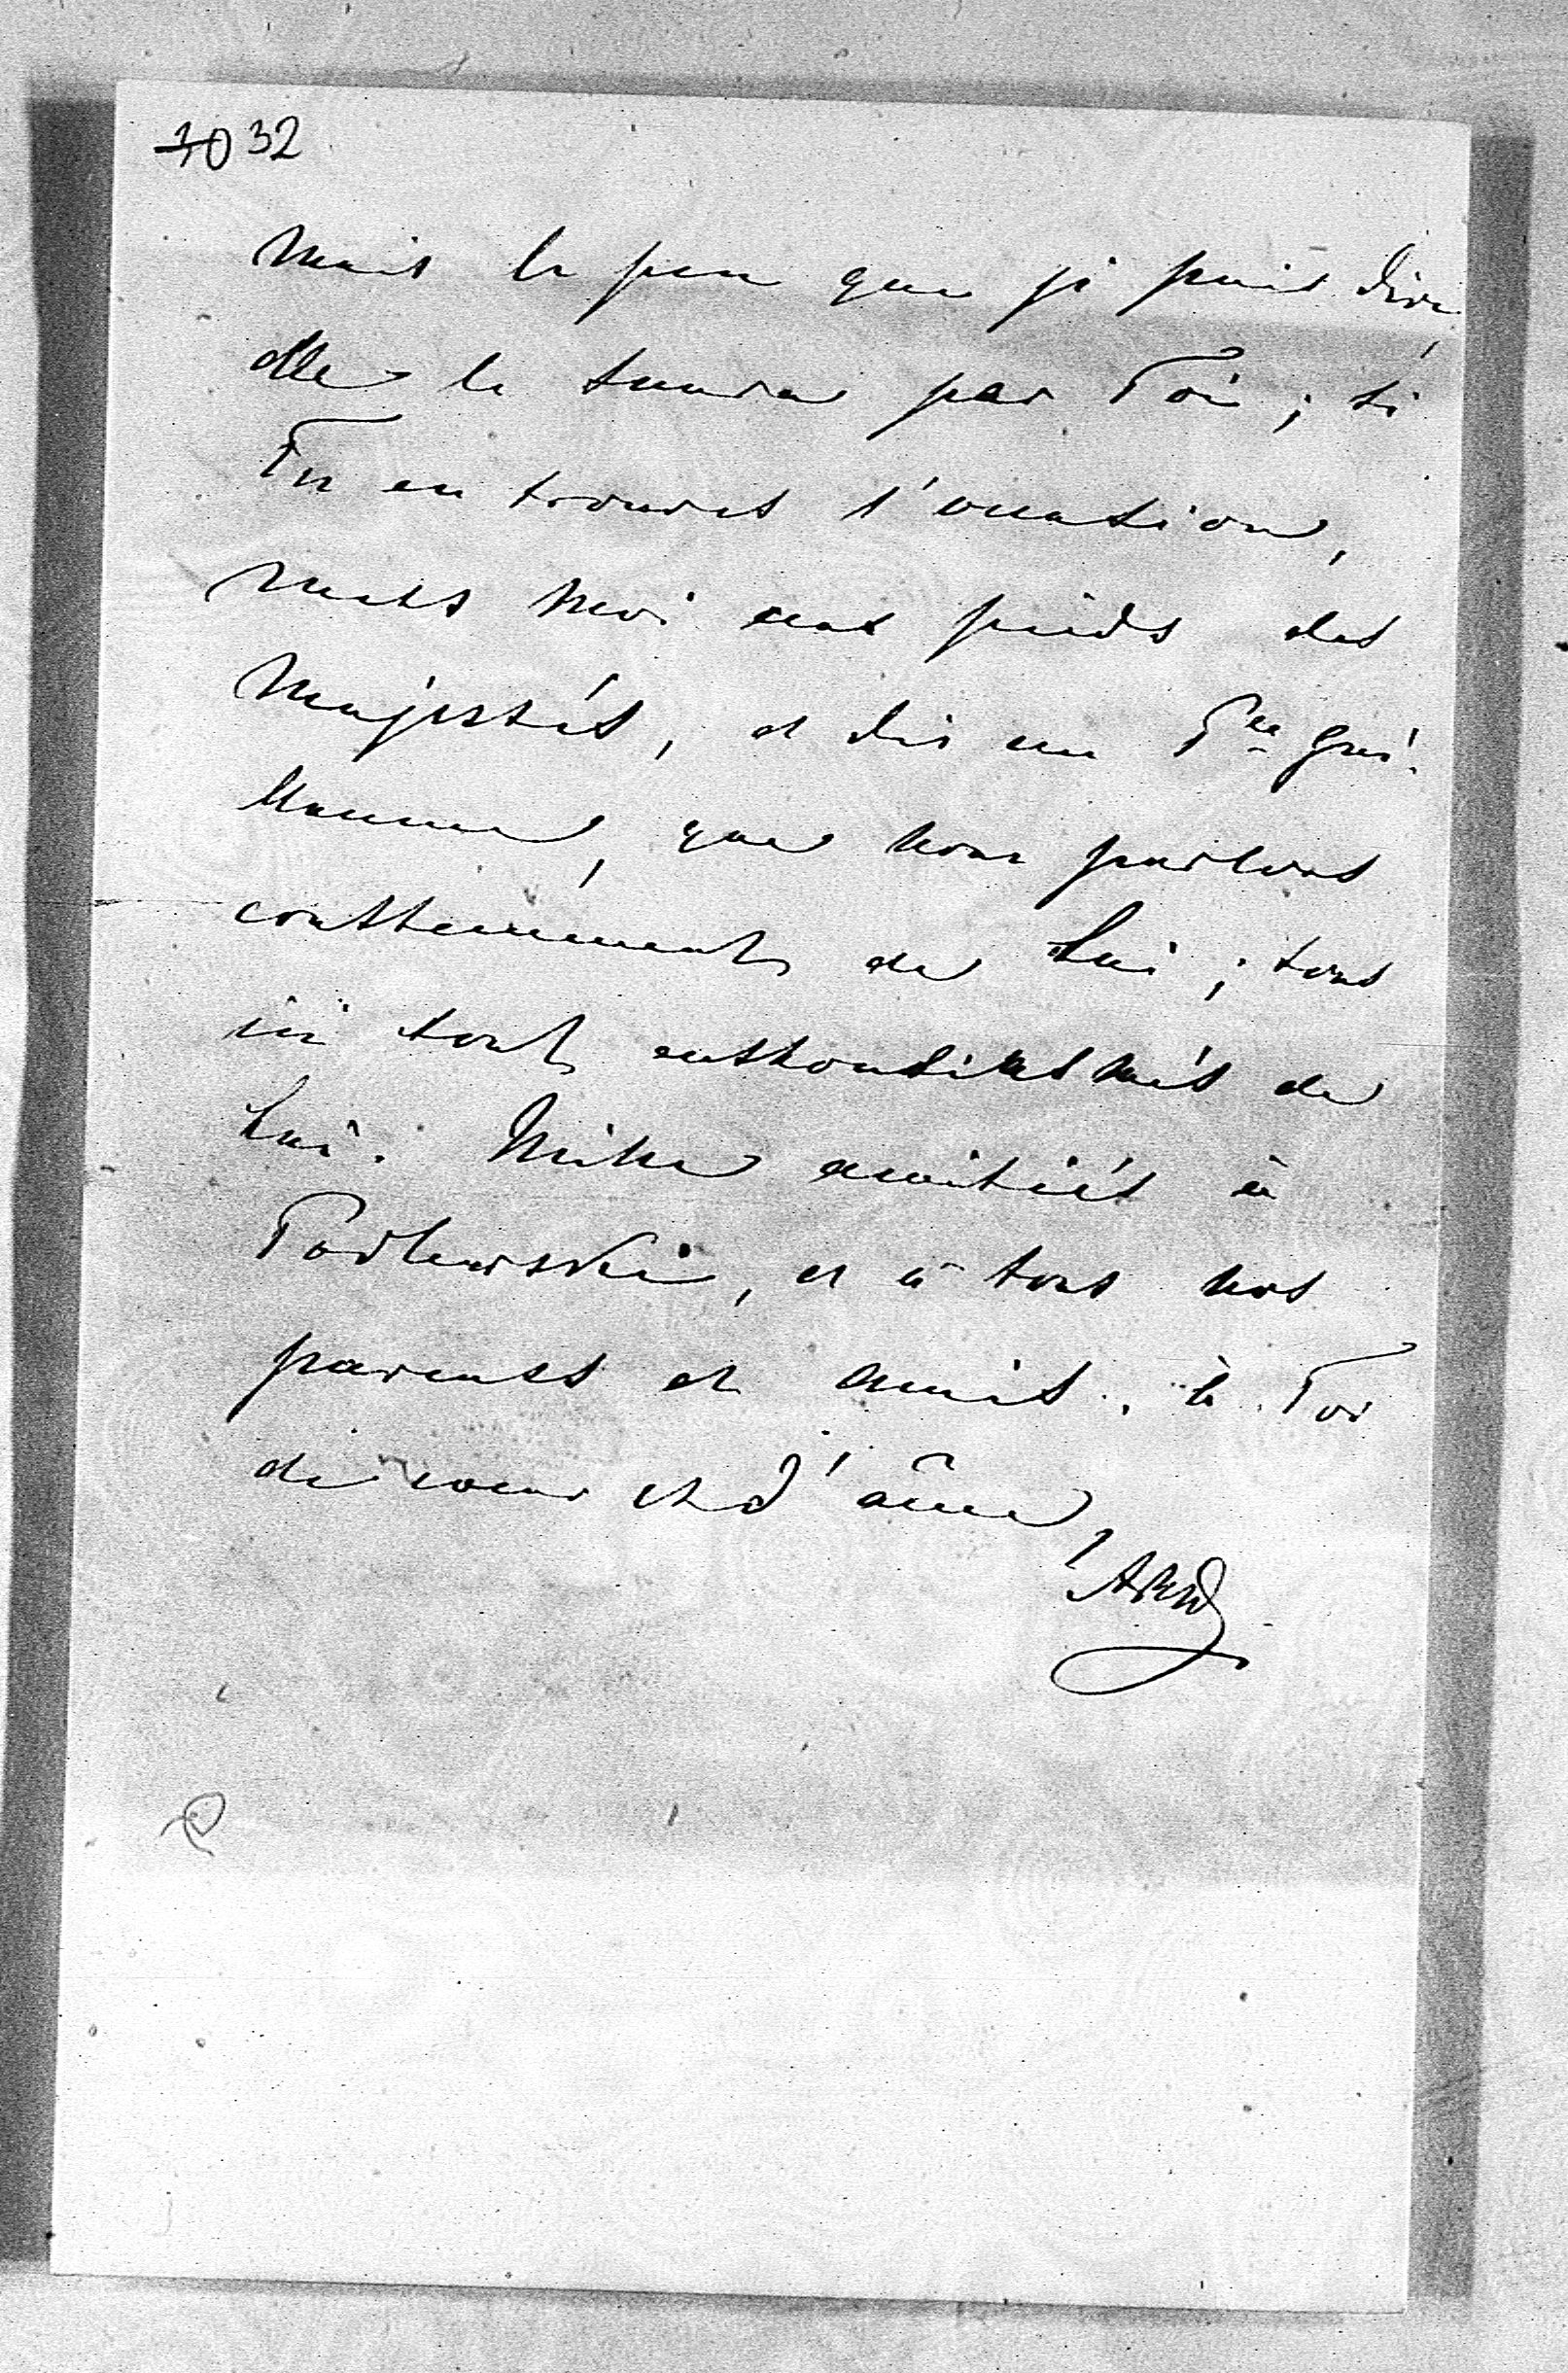 10 32
Mais le peu que je puis dire,
elle le saura par Toi; si
Tu en trouves l'occasion,
mets moi aux pieds des
Majestés, et dis au Pce Gui-
llaume, que nous parlons
constemment de Lui; tous
ici sont enthousiasmés de
Lui. Mille amitiés à
Podlewski, et à tous nos
parents et amis. à Toi
de coeur et d'âme,